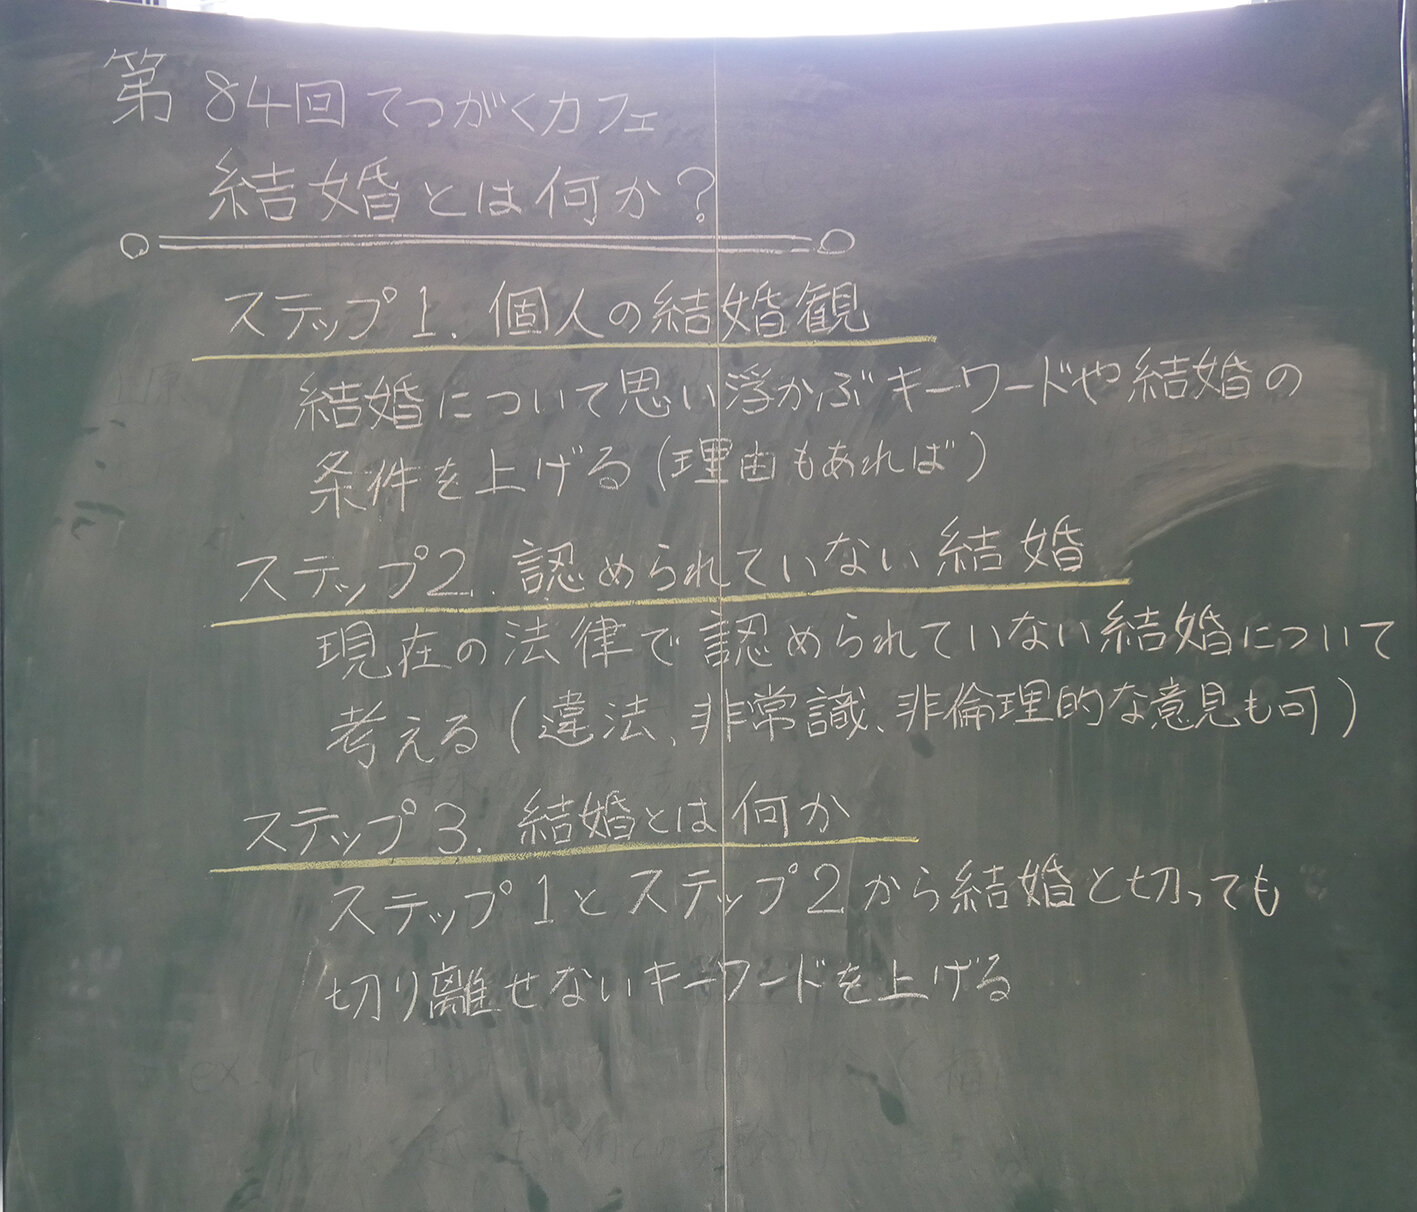 第84回てつがくカフェ
結婚とは何か?
ステップ1. 個人の結婚観
結婚について思い浮かぶキーワードや結婚の
条件を上げる(理由もあれば)
ステップ2. 認められていない結婚
現在の法律で認められていない結婚について
考える(違法、非常識、非倫理的な意見も可)
ステップ3. 結婚とは何か
ステップ1とステップ2から結婚と切っても
切り離せないキーワードを上げる